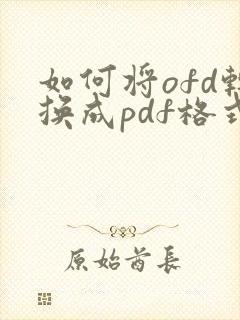 如何将ofd转
换成pdf格式
原始酋长